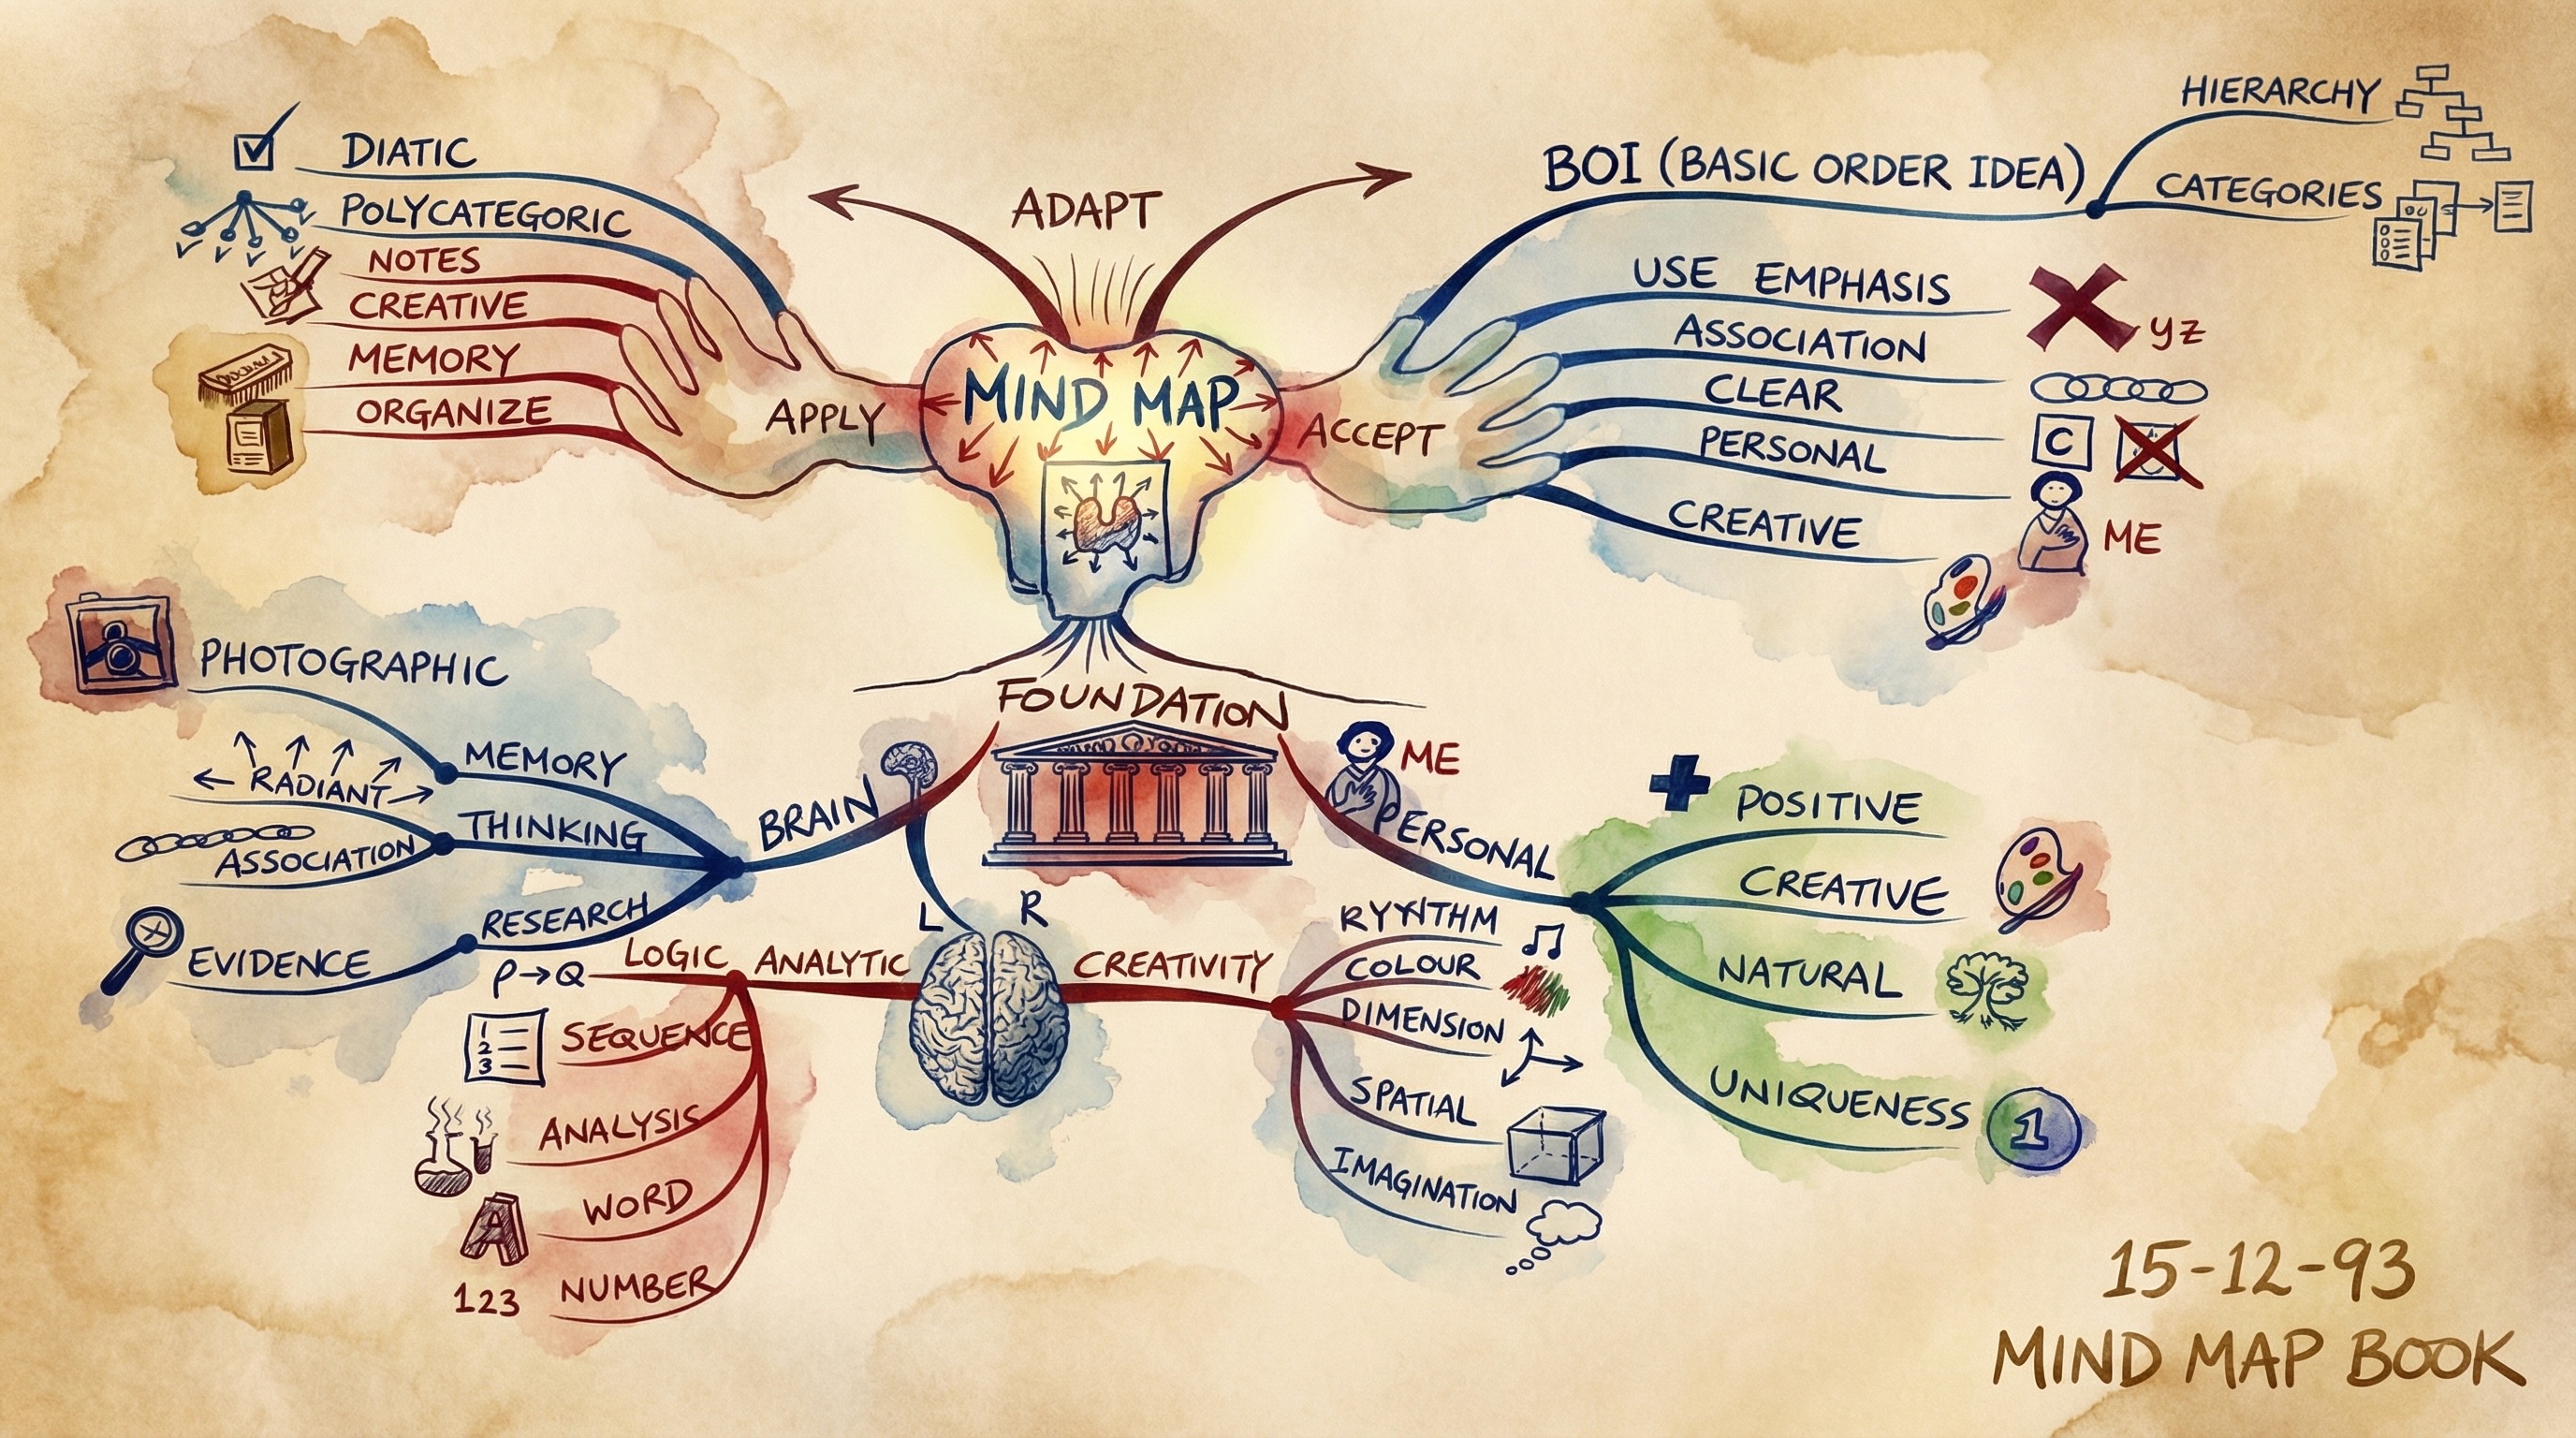 DIATIC
POLYCATEGORIC
NOTES
CREATIVE
MEMORY
ORGANIZE
APPLY
ADAPT
MIND MAP
ACCEPT
BOI (BASIC ORDER IDEA)
HIERARCHY
CATEGORIES
USE EMPHASIS
yz
ASSOCIATION
CLEAR
C
PERSONAL
ME
CREATIVE
FOUNDATION
PHOTOGRAPHIC
MEMORY
RADIANT
THINKING
ASSOCIATION
RESEARCH
EVIDENCE
BRAIN
L
R
ANALYTIC
LOGIC
P→Q
SEQUENCE
1
2
3
ANALYSIS
WORD
A
NUMBER
123
CREATIVITY
RYYTHM
COLOUR
DIMENSION
SPATIAL
IMAGINATION
ME
PERSONAL
POSITIVE
CREATIVE
NATURAL
UNIQUENESS
1
15-12-93
MIND MAP BOOK